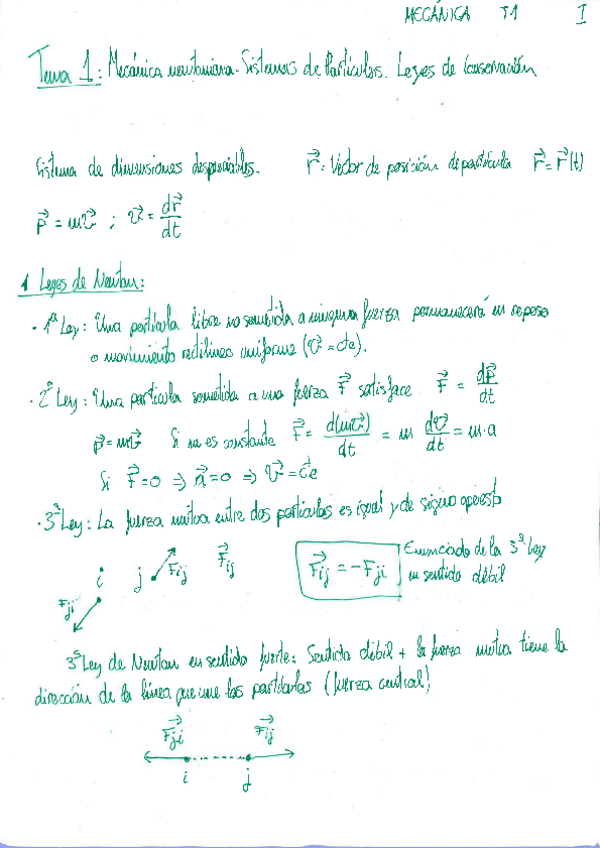 MECÁNICA T1 I
Tema 1: Mecánica newtoniana. Sistemas de Partículas. Leyes de conservación
Sistema de dimensiones despreciables. r⃗: Vector de posición de partícula r⃗ = r⃗(t)
p⃗ = mv⃗ ; v⃗ = dr⃗/dt
1 Leyes de Newton:
· 1ª Ley: "Una partícula libre no sometida a ninguna fuerza permanecerá en reposo
o movimiento rectilíneo uniforme (v⃗ = cte).
· 2ª Ley: "Una partícula sometida a una fuerza F⃗ satisface F⃗ = dp⃗/dt
p⃗ = mv⃗ Si m es constante F⃗ = d(mv⃗)/dt = m dv⃗/dt = m·a
Si F⃗=0 ⇒ a⃗=0 ⇒ v⃗=cte
· 3ª Ley: La fuerza mutua entre dos partículas es igual y de signo opuesto
i j Fij F⃗ij Fji
F⃗ij = -Fji
Enunciado de la 3ª Ley
en sentido débil
3ª Ley de Newton en sentido fuerte: Sentido débil + la fuerza mutua tiene la
dirección de la línea que une las partículas (fuerza central)
F⃗ji F⃗ij
i j